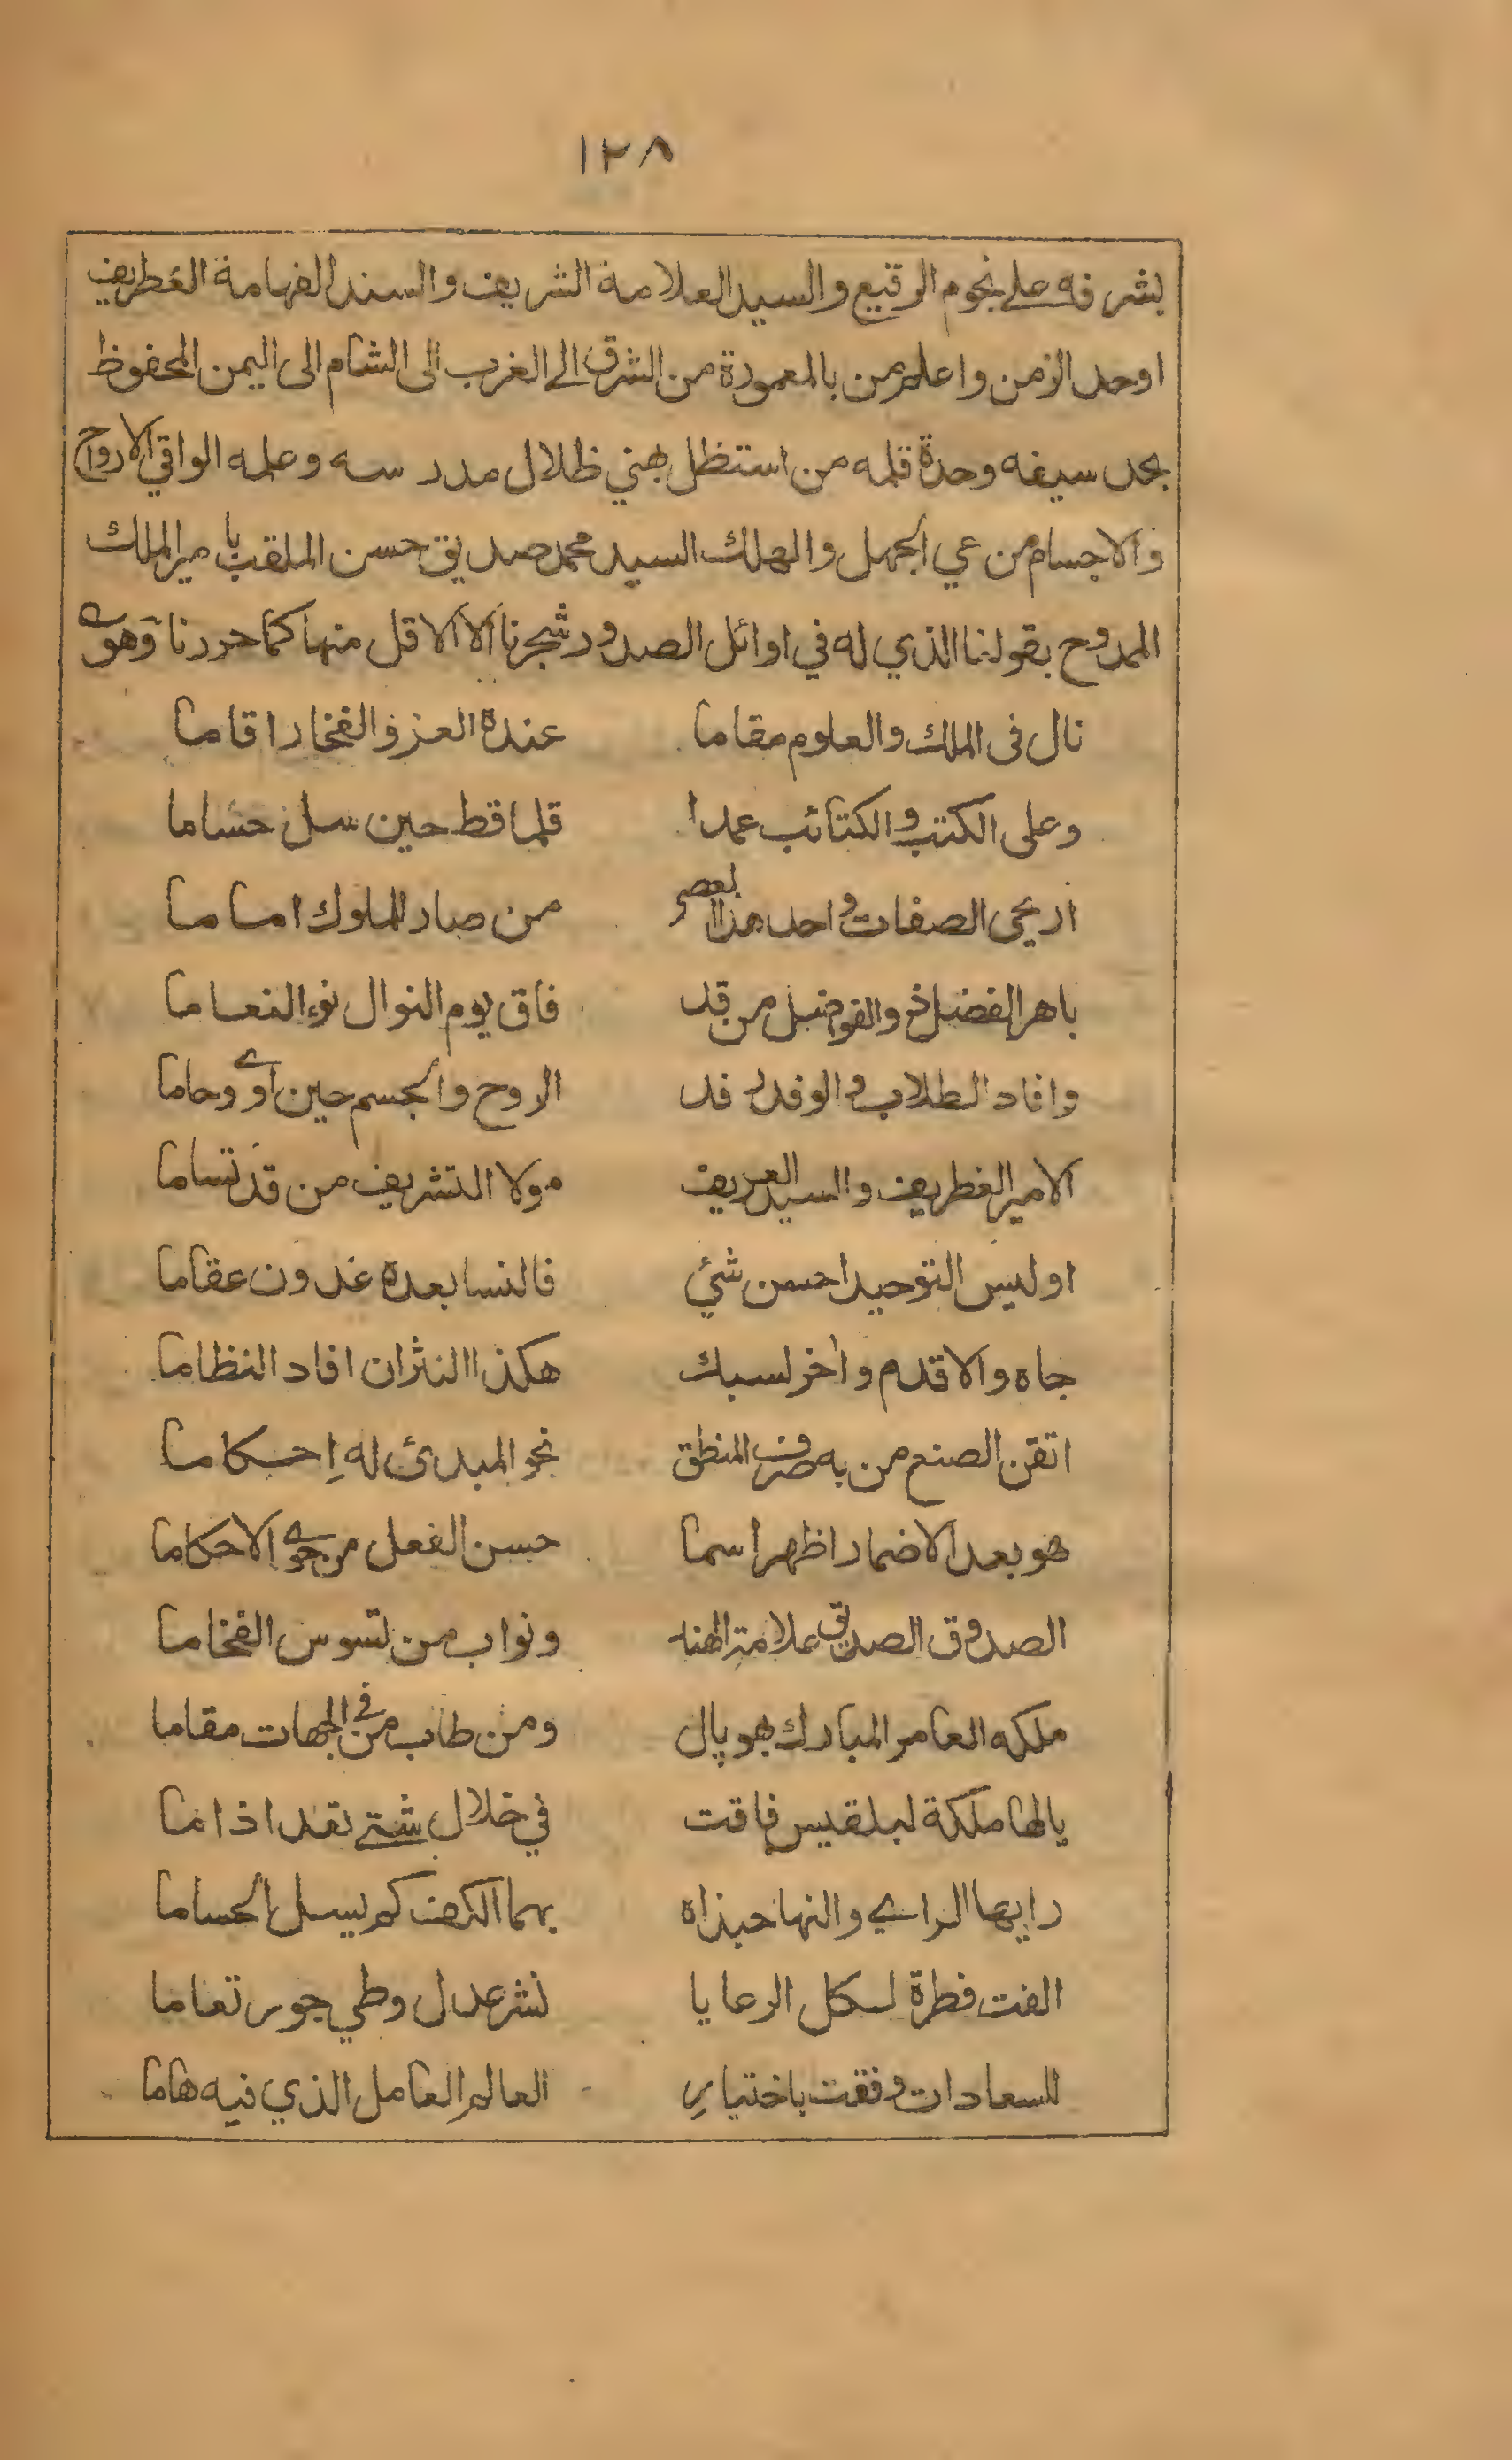 ١٢٨
بشرفه على نجوم الرقيع والسيد العلامة الشريف والسند الفهامة الغطريف
اوحد الزمن واعلم من بالمعمورة من الشرق الى الغرب الى الشام الى اليمن المحفوظ
بحد سيفه وحدة قلمه من استظل بهني ظلال مدد سه وعلمه الواقي الارواح
والاجسام من عي الجهل والهلك السيد محمد صديق حسن الملقب بامير الملك
الممدوح بقولنا الذي له في اوائل الصدور شجرنا الا الاقل منها كما حررنا وهو
نال فى الملك والعلوم مقاما عنده العز والفخار اقاما
وعلى الكتب والكتائب عمدا قلما قط حين سل حساما
اريحى الصفات واحد هذا العصر من صار للملوك اماما
باهر الفضل ذو الفواضل من قد فاق يوم النوال نوء النعاما
وافاد الطلاب والوفد رفد الروح والجسم حين اوى وحاما
الامير الغطريف والسيد العريف مولا التشريف من قد تساما
اوليس التوحيد احسن شئ فالنسا بعده غدون عقاما
جاه والاقدم واخر لسبك هكذا النثر ان افاد النظاما
اتقن الصنع من به صرف المنطق نحو المبدئ له إحكاما
هو بعد الاضمار اظهر اسما حسن الفعل من حوى الاحكاما
الصدوق الصديق علامة الهند ونواب من تسوس الفخاما
ملكه العامر المبارك بهوپال ومن طاب من في الجهات مقاما
يالها ملكة لبلقيس فاقت في خلال شتى تعد اذا ما
رايها الراي والنها حبذاه بهما الكهف كم يسل الحساما
الفت فطرة لكل الرعايا نشر عدل وطي جور تعاما
للسعادات وفقت باختيار العالم العامل الذي فيه هاما